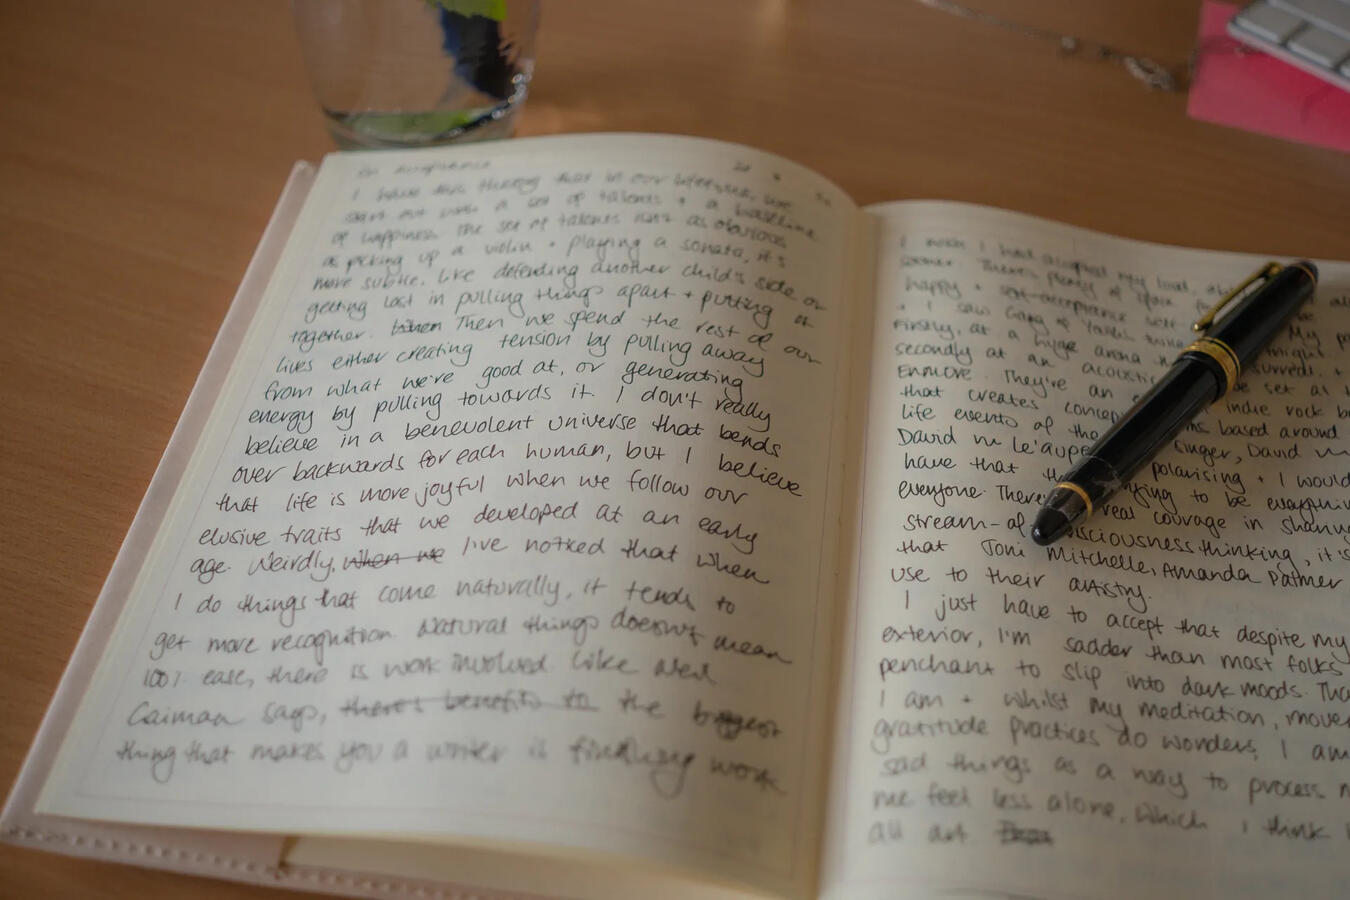 On Acceptance
I have this theory that in our lifetimes, we
start out with a set of talents + a baseline
of happiness. The set of talents isn't as obvious
as picking up a violin + playing a sonata, it's
more subtle. Like defending another child's side or
getting lost in pulling things apart + putting it
together. Then we spend the rest of our
lives either creating tension by pulling away
from what we're good at, or generating
energy by pulling towards it. I don't really
believe in a benevolent universe that bends
over backwards for each human, but I believe
that life is more joyful when we follow our
elusive traits that we developed at an early
age. Weirdly, when we I've noticed that when
I do things that come naturally, it tends to
get more recognition. Natural things doesn't mean
100% ease, there is work involved. Like Neil
Gaiman says, there's benefits to the biggest
thing that makes you a writer is finishing work
I wish I had accepted my
sooner. There's plenty of space for
happy + self-acceptance self-
+ I saw Gang of Youths
Firstly, at a huge arena
secondly at an acoustic set at
Enmore. They're an indie rock
that creates based around
life events of the singer, David
David m Le'aupepe
have that polarising + I would
everyone. There to be everything
stream-of consciousness thinking, it's
that Joni Mitchelle, Amanda Palmer
use to their artistry.
I just have to accept that despite my
exterior, I'm sadder than most folks
penchant to slip into dark moods.
I am + whilst my meditation,
gratitude practices do wonders, I am
sad things as a way to process
me feel less alone, which I think
all art